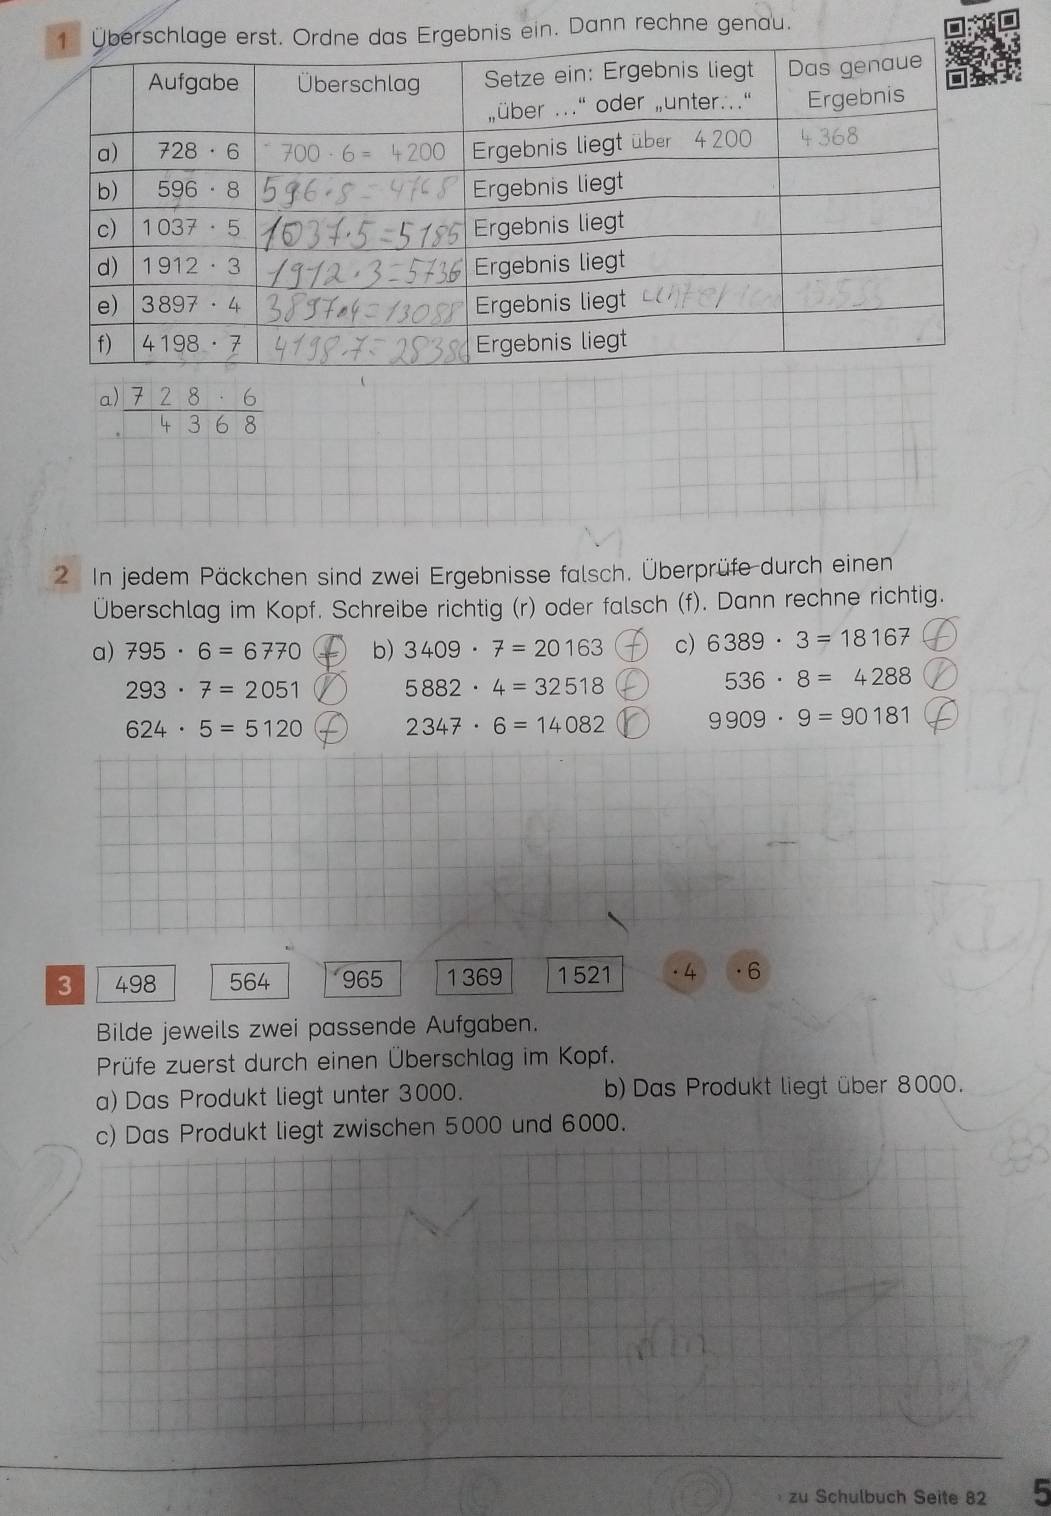 1 Überschlage erst. Ordne das Ergebnis ein. Dann rechne genau.
Aufgabe Überschlag Setze ein: Ergebnis liegt „über ...“ oder „unter...“ Das genaue Ergebnis
a) 728 · 6 700 · 6 = 4200 Ergebnis liegt über 4200 4368
b) 596 · 8 596·8=4768 Ergebnis liegt
c) 1037 · 5 1037·5=5185 Ergebnis liegt
d) 1912 · 3 1912·3=5736 Ergebnis liegt
e) 3897 · 4 3897·4=13088 Ergebnis liegt unter
f) 4198 · 7 4198·7= Ergebnis liegt
a) 728 · 6
4368
2 In jedem Päckchen sind zwei Ergebnisse falsch. Überprüfe durch einen
Überschlag im Kopf. Schreibe richtig (r) oder falsch (f). Dann rechne richtig.
a) 795 · 6 = 6770 f b) 3409 · 7 = 20163 f c) 6389 · 3 = 18167 f
293 · 7 = 2051 r 5882 · 4 = 32518 f 536 · 8 = 4288 r
624 · 5 = 5120 f 2347 · 6 = 14082 r 9909 · 9 = 90181 f
3 498 564 965 1369 1521 · 4 · 6
Bilde jeweils zwei passende Aufgaben.
Prüfe zuerst durch einen Überschlag im Kopf.
a) Das Produkt liegt unter 3000. b) Das Produkt liegt über 8000.
c) Das Produkt liegt zwischen 5000 und 6000.
zu Schulbuch Seite 82 5